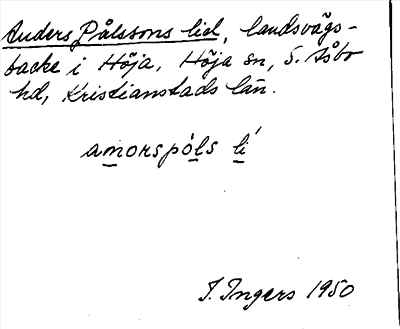 Anders Pålssons lid, landsvägs-
backe i Höja, Höja sn, S. Åsbo
hd, Kristianstads län.
amorspóls lí
I. Ingers 1950